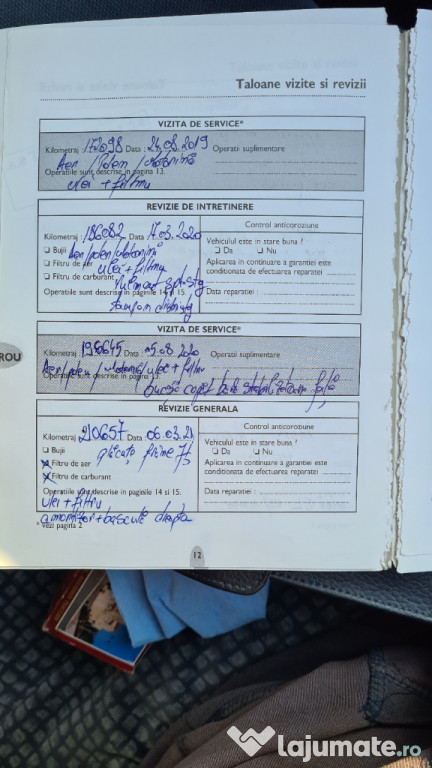 Taloane vizite si revizii
VIZITA DE SERVICE*
Kilometraj : 172698 Data : 24.08.2019 Operatii suplimentare
Aer / Polen / Motorină
Operatiile sunt descrise in pagina 13.
ulei + filtru
REVIZIE DE INTRETINERE
Kilometraj : 186082 Data 17.03.2020
Bujii Aer/polen/motorină
Filtru de aer ulei + filtru
Filtru de carburant
Operatiile sunt descrise in paginile 14 si 15.
Control anticoroziune
Vehiculul este in stare buna ?
Da Nu
Aplicarea in continuare a garantiei este
conditionata de efectuarea reparatiei
Data reparatiei :
ROU
VIZITA DE SERVICE*
Kilometraj : 198645 Data 05.08.2020 Operatii suplimentare
Aer/polen/motorină/ulei + filtru
Operatiile sunt descrise in pagina
REVIZIE GENERALA
Kilometraj 210657 Data 06.03.21
Bujii plăcuțe frâne
Filtru de aer
Filtru de carburant
Operatiile sunt descrise in paginile 14 si 15.
ulei + filtru
amortizor + bascula dreapta
*Vezi pagina 2
Control anticoroziune
Vehiculul este in stare buna ?
Da Nu
Aplicarea in continuare a garantiei este
conditionata de efectuarea reparatiei
Data reparatiei :
12
lajumate.ro